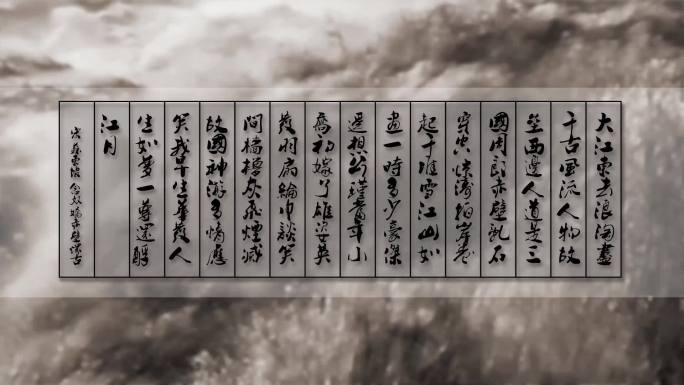 大江東去浪淘盡
千古風流人物故
壘西邊人道是三
國周郎赤壁亂石
穿空驚濤拍岸卷
起千堆雪江山如
畫一時多少豪傑
遥想公瑾當年小
喬初嫁了雄姿英
發羽扇綸巾談笑
間檣櫓灰飛煙滅
故國神游多情應
笑我早生華髮人
生如夢一尊還酹
江月
蘇東坡念奴嬌赤壁懷古